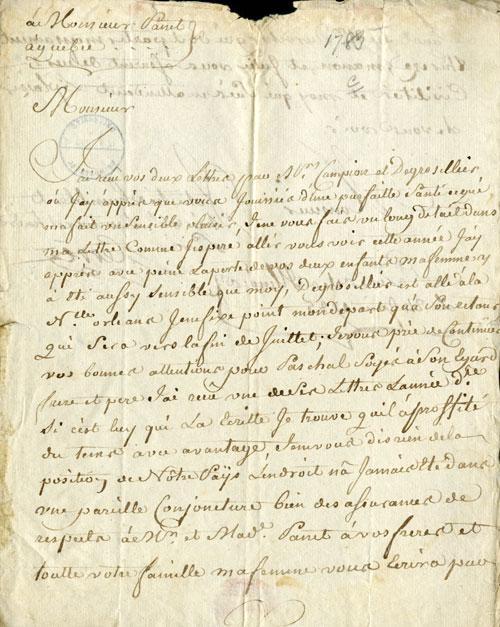 à Monsieur Panet
a quebec
1783
Monsieur
J'ai recu vos deux Lettres par Mrs Campion et Degroseillier
ou J'ay appris que vous Jouissiés d'une parfaitte Santé ce qui
ma fait un sensible plaisir, Je ne vous fais un long detail dans
ma Lettre Comme J'espere aller vous voir cette année J'ay
appris avec peine La perte de vos deux enfants ma femme y
à été aussy sensible que moy, Degroseillier est allé à la
Nlle orleans Je ne fixe point mon depart qu'à Son retour
qui Sera vers la fin de Juillet, Je vous prie de Continuer
vos bonnes attentions pour Paschal Soyes à Son Egard
frere et pere J'ai recu une de Ses Lettres L'année dre
Si c'est luy qui La Ecritte Je trouve qu'il à proffité
du tems avec avantage Je ne vous dis rien de la
position de Nôtre Païs L'endroit n'à Jamais Eté dans
une pareille Conjoncture bien des assurances de
respects à Mr et Made Panet à vos freres et
toutte votre famille ma femme vous Ecrira par